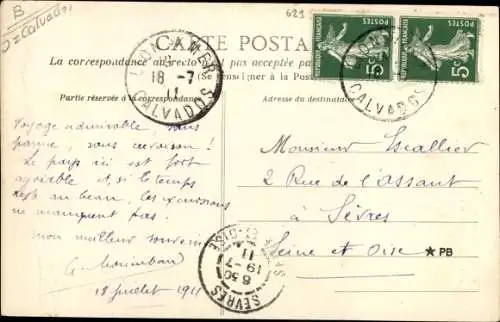 B
Calvados
629
CARTE POSTA
La correspondance au recto n'est pas acceptée pa
(Se renseigner à la Poste
Partie réservée à la correspondance
Adresse du destinataire
18 -7
11
CALVADOS
RÉPUBLIQUE FRANÇAISE
POSTES
5c
POSTES
5c
CALVADOS
Voyage admirable, sans
panne, sans crevaison !
Le pays ici est fort
agréable et, si le temps
reste au beau, les excursions
ne manquent pas.
mon meilleur souvenir
18 juillet 1911
Monsieur Escallier
2 Rue de l'assaut
à Sèvres
Seine et Oise
★ PB
8 30
19 -7
11
SEVRES